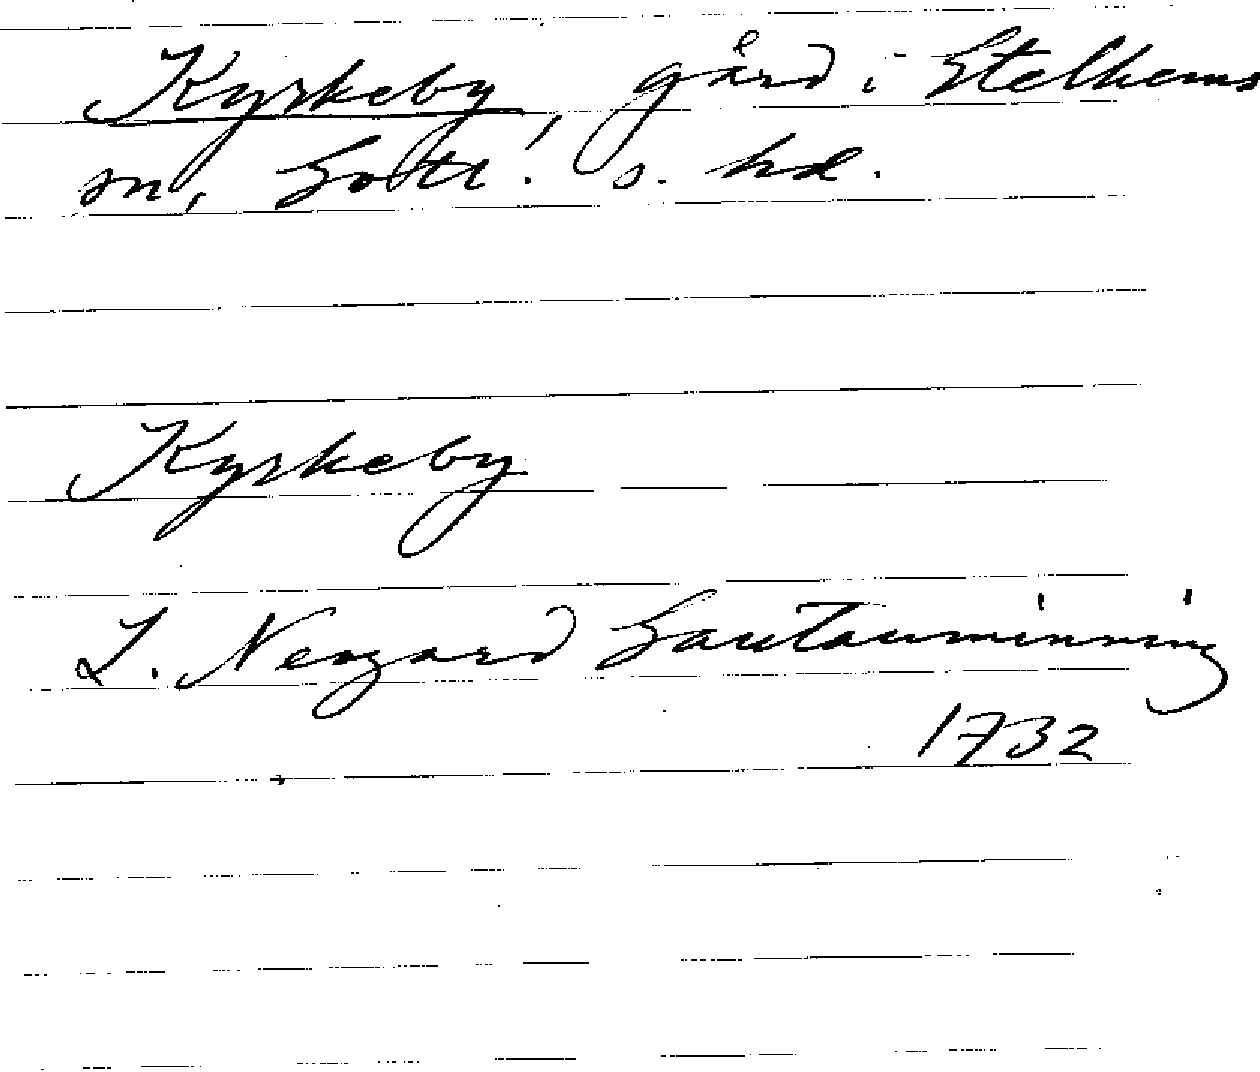 Kyrkeby, gård i Etelhems
sn, Gotl. s. hd.
Kyrkeby
L. Neogard Gautauminning
1732